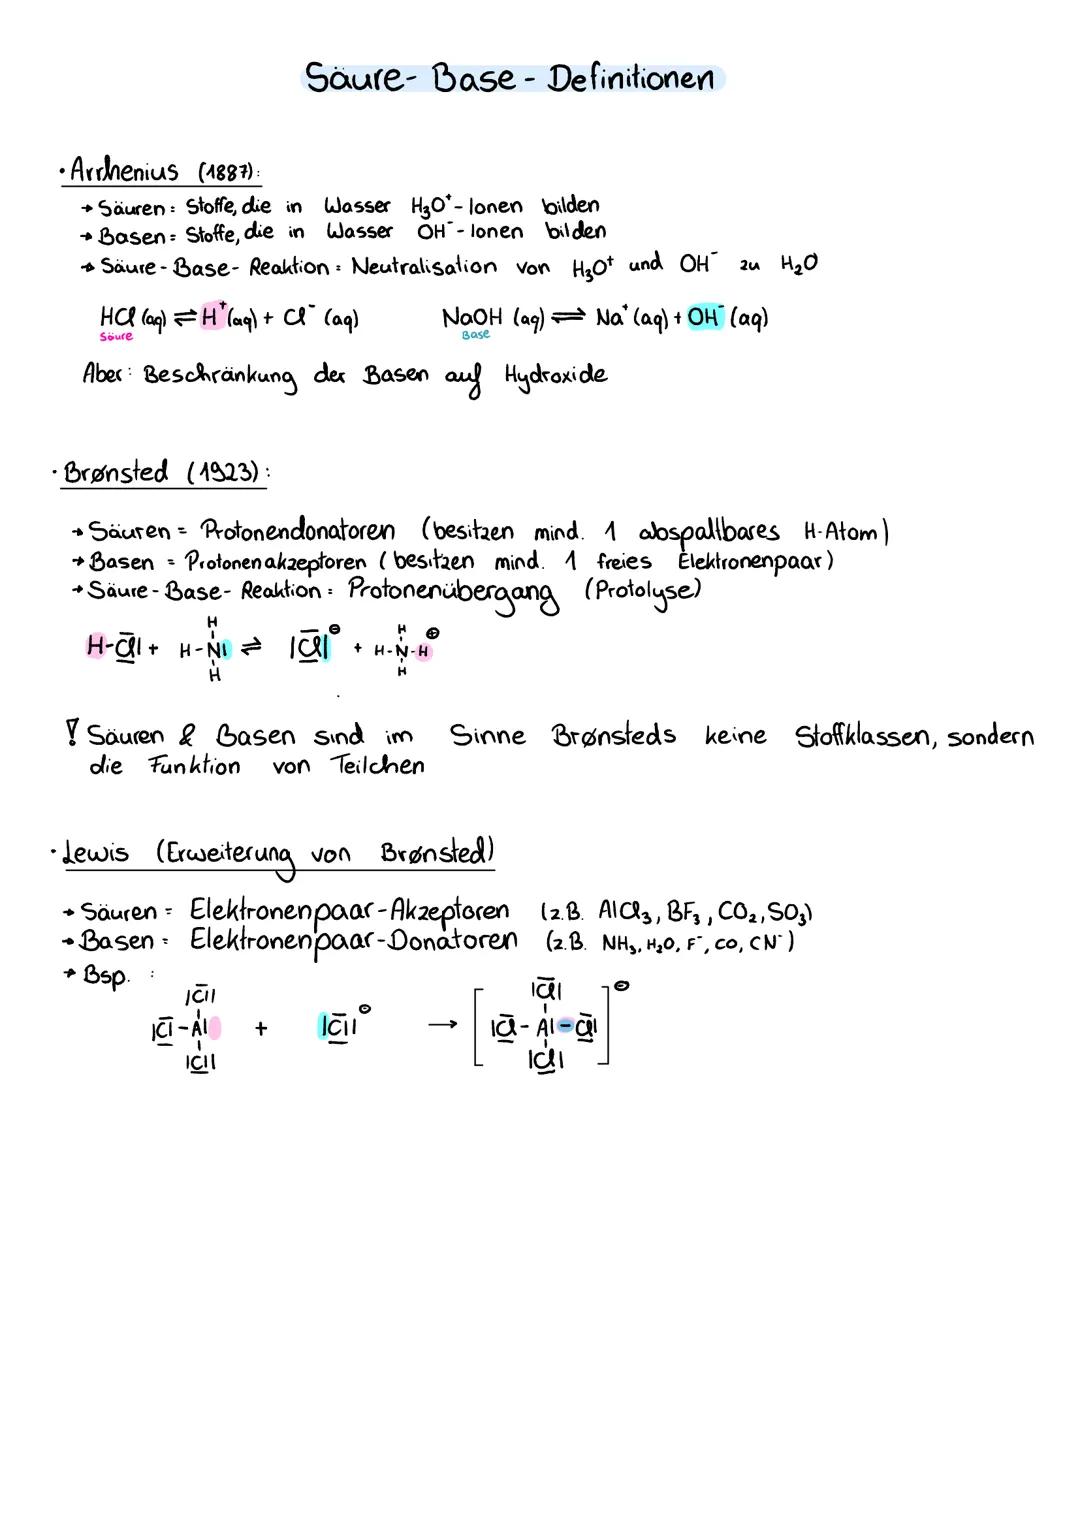 Säure-Base-Definitionen
·Arrhenius (1887):
→ Säuren = Stoffe, die in Wasser H₃O⁺-Ionen bilden
→ Basen = Stoffe, die in Wasser OH⁻-Ionen bilden
→ Säure-Base-Reaktion = Neutralisation von H₃O⁺ und OH⁻ zu H₂O
HCl (aq) ⇌ H⁺(aq) + Cl⁻ (aq) NaOH (aq) ⇌ Na⁺ (aq) + OH⁻ (aq)
Säure Base
Aber: Beschränkung der Basen auf Hydroxide
·Brønsted (1923):
→ Säuren = Protonendonatoren (besitzen mind. 1 abspaltbares H-Atom)
→ Basen = Protonenakzeptoren (besitzen mind. 1 freies Elektronenpaar)
→ Säure-Base-Reaktion = Protonenübergang (Protolyse)
H H ⊕
H-Cl| + H-N| ⇌ |Cl|⊖ + H-N-H
H H
! Säuren & Basen sind im Sinne Brønsteds keine Stoffklassen, sondern
die Funktion von Teilchen
·Lewis (Erweiterung von Brønsted)
→ Säuren = Elektronenpaar-Akzeptoren (z.B. AlCl₃, BF₃, CO₂, SO₃)
→ Basen = Elektronenpaar-Donatoren (z.B. NH₃, H₂O, F⁻, CO, CN⁻)
→ Bsp. :
|Cl| |Cl| ⊖
|Cl-Al + |Cl|⊖ → [|Cl-Al-Cl|]
|Cl| |Cl|